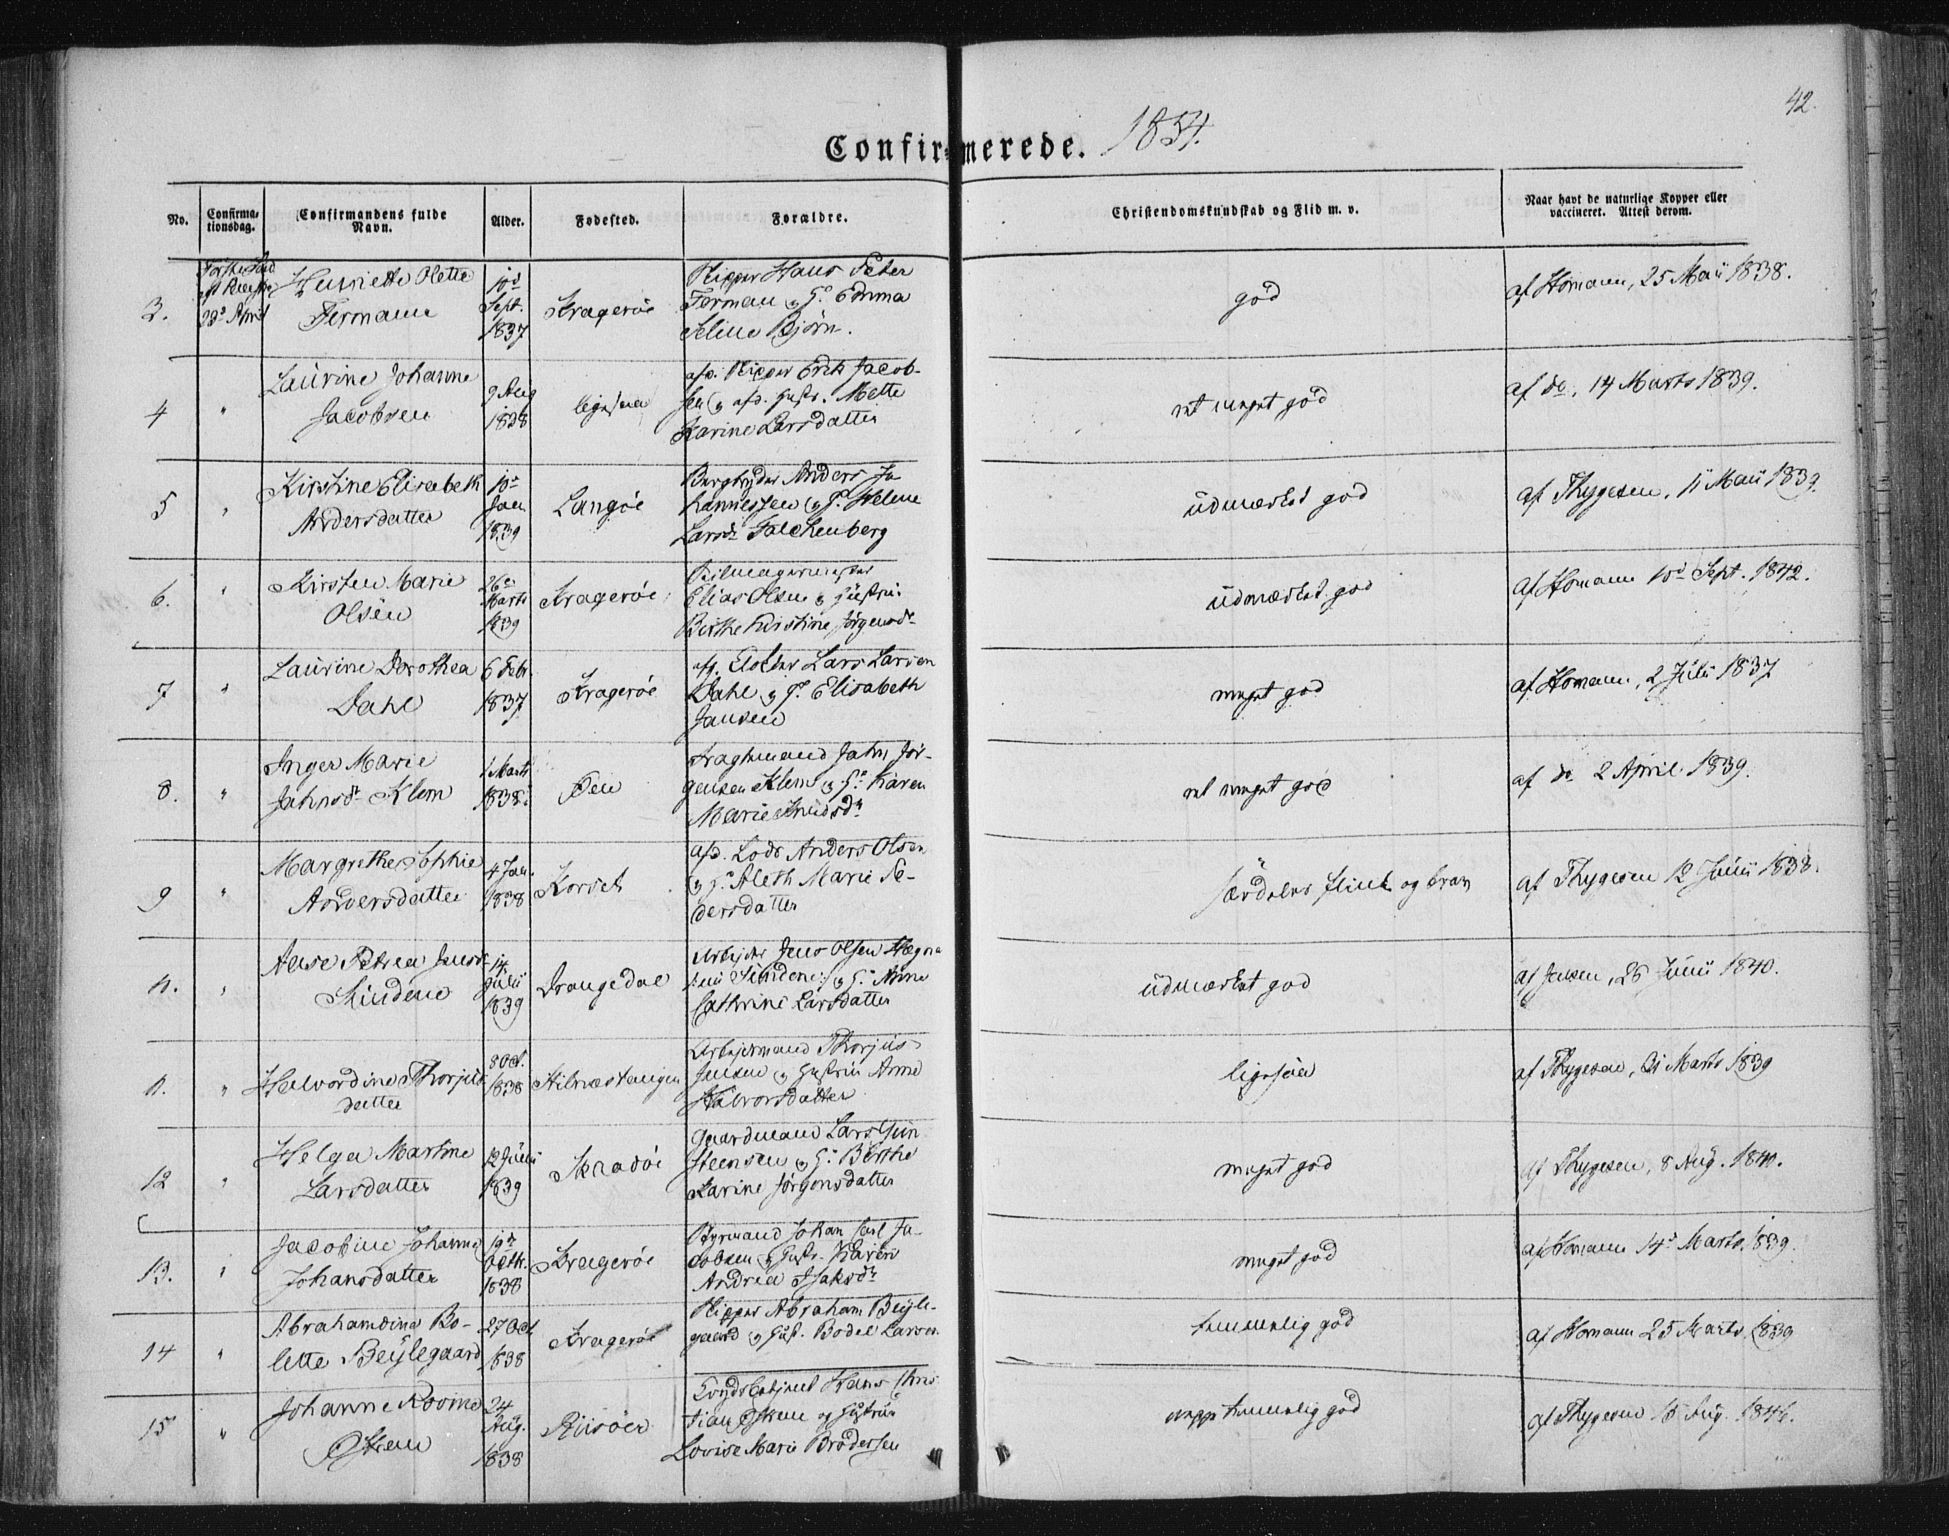 42.
Confirmerede. 1854.
No.
Confirma-
tionsdag.
Confirmandens fulde
Navn.
Alder.
Fødested.
Forældre.
Christendomskundskab og Flid m. v.
Naar havt de naturlige Kopper eller
vaccineret. Attest derom.
3.
April
Henriette Olette
Fermann
10d
Sept.
1837
Kragerøe
Skipper Hans Peter
Ferman og H. Emma
Seline Bjørn.
god
af Homann, 25 Maii 1838.
4
"
Laurine Johanne
Jacobsen
9 Aug
1838
ligesaa
afd. Skipper Erik Jacob-
sen og afd. Hustr. Mette
Karine Larsdatter
ret meget god
af do, 14 Marts 1839.
5
"
Kirstine Elisabeth
Andersdatter
10d
Jan
1839
Langøe
Anders Jo
hannessen og H. Helene
Larsd. Falchenberg
udmærket god
af Thygesen, 11 Maii 1839.
6.
"
Kirsten Marie
Olsen
26d
Marts
1839
Kragerøe
Seilmagermester
Elias Olsen og Hustru
Birthe Kirstine Jørgensdr
udmærket god
af Homann 10d Sept. 1842.
7
"
Laurine Dorothea
Dahl
6 Febr.
1837
Kragerøe
Lars Larsen
Dahl og H. Elisabeth
Jansen
meget god
af Homann, 2 Julii 1837
8.
"
Inger Marie
Jahnsdr Klem
1 Marts
1838.
Øen
Fragtmand Jahn Jør-
gensen Klem og H. Karen
Marie Knudsdr
ret meget god
af do 2 April 1839.
9
"
Margrethe Sophie
Andersdatter
4 Jan.
1838
Korset
afd. Lods Anders Olsen
og H. Aleth Marie Pe-
dersdatter
særdeles flink og brav
af Thygesen 12 Junii 1838.
"
Aase Petrea Jensd.
14
Julii
1839
Drangedal
Arbejder Jens Olsen
og H. Anne
Cathrine Larsdatter
udmærket god
af Jensen, 26 Junii 1840.
11.
"
Halvordine Thorjus
datter
8 Oct.
1838
Stilnestangen
Arbejdsmand Thorjus
Jensen og Hustru Anne
Halvorsdatter
ligesaa
af Thygesen, 21 Marts 1839
12
"
Helga Martine
Larsdatter
12 Junii
1839
Skaadøe
Gaardmand Lars Gun
steensen og H. Birthe
Karine Jørgensdatter
meget god
af Thygesen, 8 Aug. 1840.
13.
"
Jacobine Johanne
Johansdatter
19d
Octbr.
1838
Kragerøe
Styrmand Johan Carl Ja-
cobsen og Hustr. Karen
Andrea Isaksdr
meget god
af Homann 14d Marts 1839.
14
"
Abrahamdine Bo-
lette Beÿlegaard
27 Oct
1838
Kragerøe
Skipper Abraham Beÿle-
gaard og Hust. Bodel Larsen
temmelig god
af Homann 25 Marts 1839
15
"
Johanne Rosine
24
Aug.
1838
Riisøer
Hans Chris
tian og Hustru
Lovise Marie Brodersen
neppe temmelig god
af Thygesen 16 Aug. 1846.